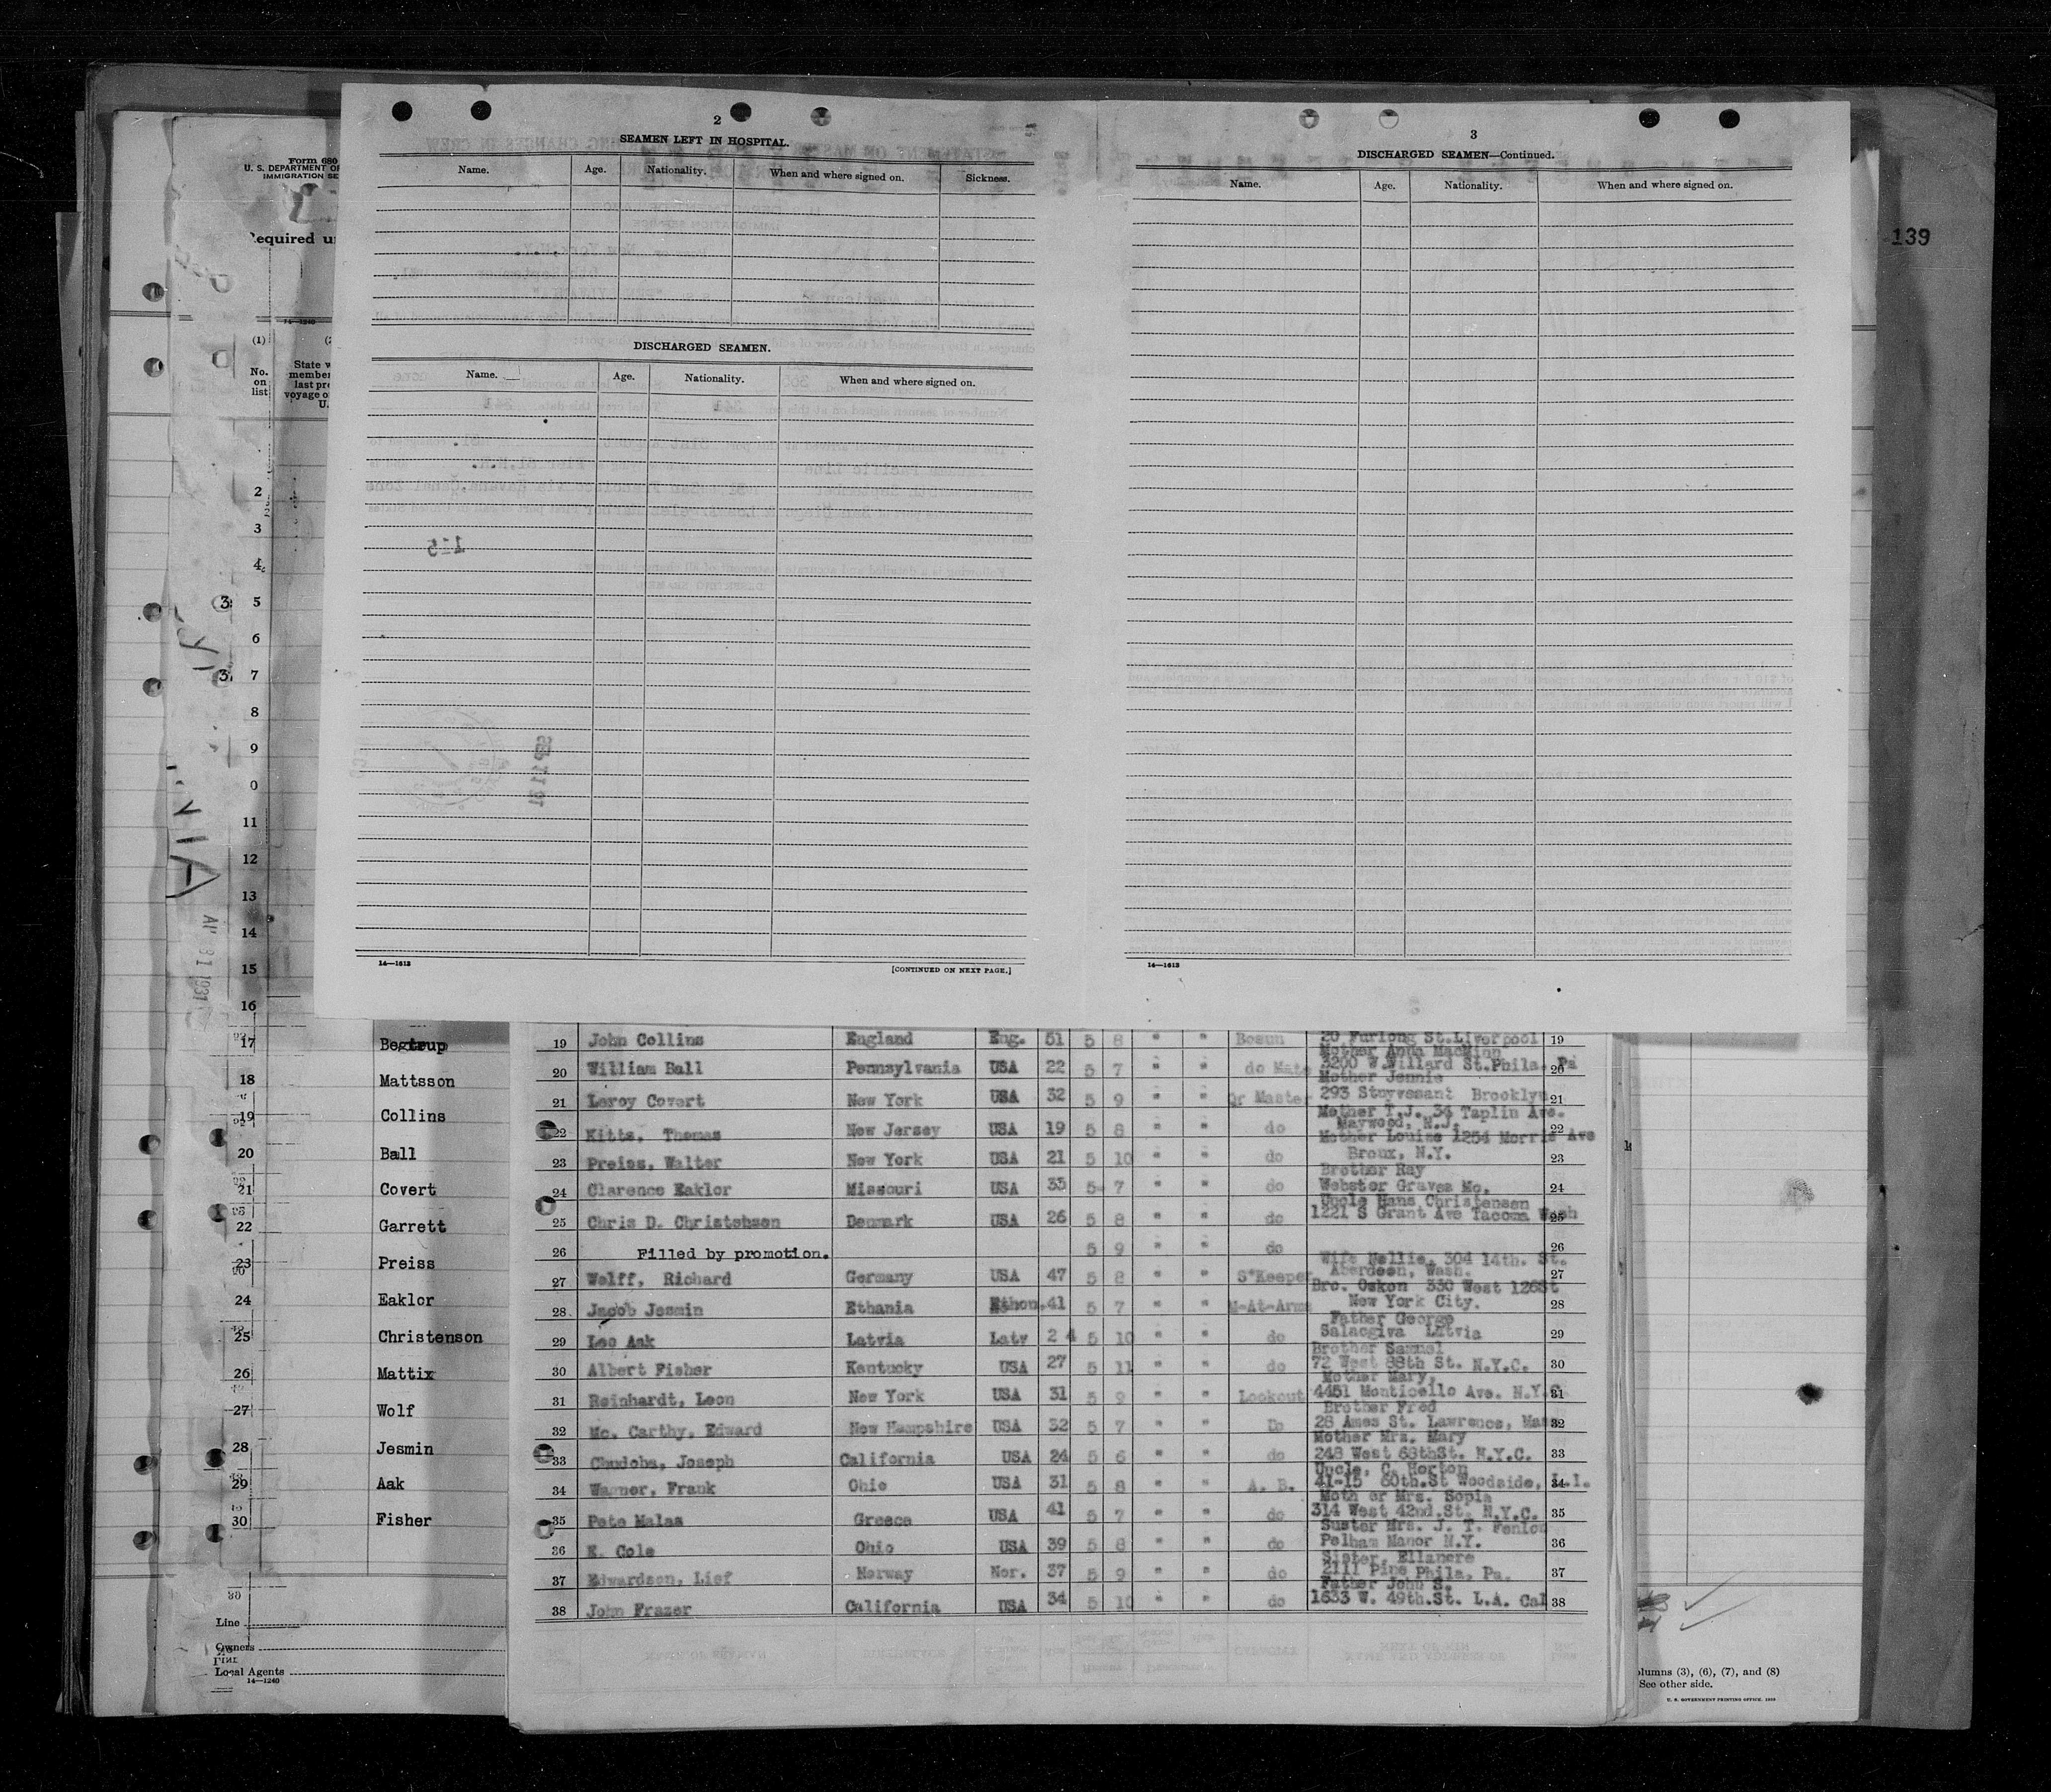 139
2
SEAMEN LEFT IN HOSPITAL.
Name. Age. Nationality. When and where signed on. Sickness.
DISCHARGED SEAMEN.
Name. Age. Nationality. When and where signed on.
14—1613
[CONTINUED ON NEXT PAGE.]
3
DISCHARGED SEAMEN—Continued.
Name. Age. Nationality. When and where signed on.
14—1613
Form 680
U. S. DEPARTMENT OF
IMMIGRATION SE
Required u
14—1240
(1)
No.
on
list
State w
member
last pre
voyage o
U.
2
3
4
5
6
7
8
9
0
11
12
13
14
15
16
17 Bostrup
18 Mattsson
19 Collins
20 Ball
21 Covert
22 Garrett
23 Preiss
24 Eaklor
25 Christenson
26 Mattix
27 Wolf
28 Jesmin
29 Aak
30 Fisher
Line
Owners
Local Agents
14—1240
19 John Collins England Eng. 51 5 8 " " Bosun 20 Furlong St. Liverpool 19
Mother Anna MacMinn
20 William Ball Pennsylvania USA 22 5 7 " " do Mate 3200 W. Willard St. Phila. Pa 20
Mother Jennie
21 Leroy Covert New York USA 32 5 9 " " Qr Master 293 Stuyvesant Brooklyn 21
Mother T.J. 36 Taplin Ave.
22 Kitts, Thomas New Jersey USA 19 5 8 " " do Maywood, N.J. 22
Mother Louise 1254 Morris Ave
23 Preiss, Walter New York USA 21 5 10 " " do Bronx, N.Y. 23
Brother Ray
24 Clarence Eaklor Missouri USA 33 5 7 " " do Webster Graves Mo. 24
Uncle Hans Christensen
25 Chris D. Christensen Denmark USA 26 5 8 " " do 1221 S Grant Ave Tacoma Wash 25
26 Filled by promotion. 5 9 " " do 26
Wife Nellie, 304 14th. St.
27 Wolff, Richard Germany USA 47 5 8 " " S'Keeper Aberdeen, Wash. 27
Bro. Oskon 330 West 126St
28 Jacob Jesmin Ethania Ethon. 41 5 7 " " M-At-Arms New York City. 28
Father George
29 Leo Aak Latvia Latv 24 5 10 " " do Salacgiva Latvia 29
Brother Samuel
30 Albert Fisher Kantucky USA 27 5 11 " " do 72 West 88th St. N.Y.C. 30
Mother Mary,
31 Reinhardt, Leon New York USA 31 5 9 " " Lookout 4451 Monticello Ave. N.Y.C. 31
Brother Fred
32 Mc. Carthy, Edward New Hampshire USA 32 5 7 " " Do 28 Ames St. Lawrence, Mas 32
Mother Mrs. Mary
33 Chudoba, Joseph California USA 24 5 6 " " do 248 West 68thSt. N.Y.C. 33
Uncle, C. Horton
34 Wagner, Frank Ohio USA 31 5 8 " " A. B. 41-15 60th.St Woodside, L.I. 34
Moth er Mrs. Sopia
35 Pete Malas Greece USA 41 5 7 " " do 314 West 42nd.St. N.Y.C. 35
Suster Mrs. J. T. Fenlon
36 E. Cole Ohio USA 39 5 8 " " do Pelham Manor N.Y. 36
Sister, Ellanore
37 Edwardson, Lief Norway Nor. 37 5 9 " " do 2111 Pine Phila, Pa. 37
Father John S.
38 John Frazer California USA 34 5 10 " " do 1633 W. 49th.St. L.A. Cal 38
lumns (3), (6), (7), and (8)
See other side.
U. S. GOVERNMENT PRINTING OFFICE.